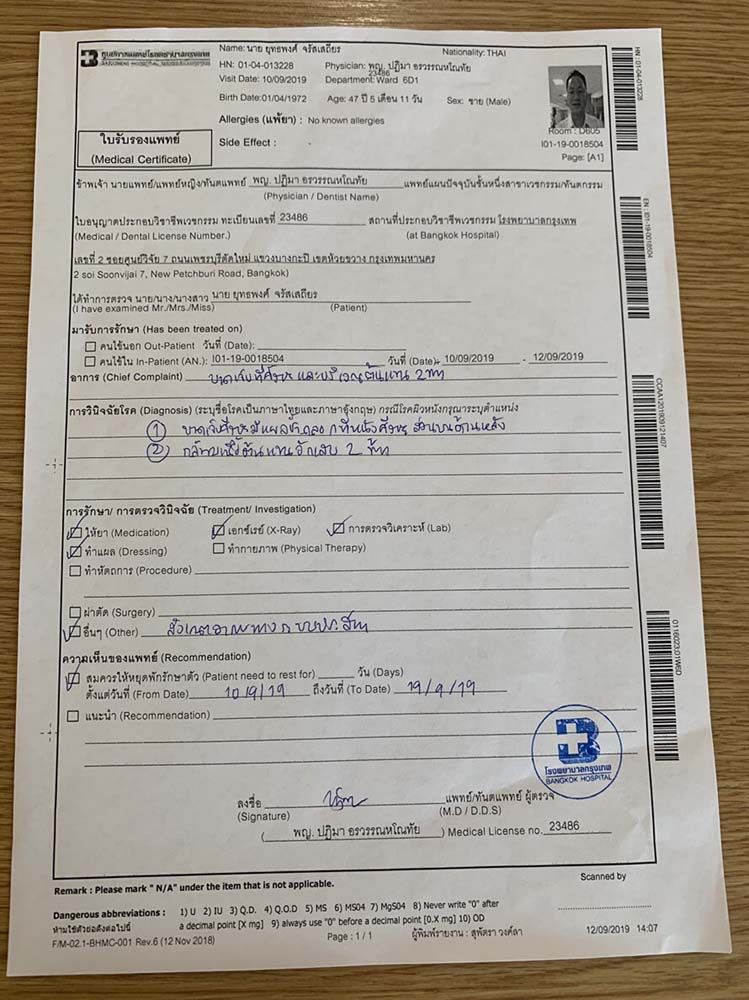 ศูนย์การแพทย์โรงพยาบาลกรุงเทพ
Name: นาย ยุทธพงศ์ จรัสเสถียร Nationality: THAI
HN: 01-04-013228 Physician: พญ. ปฏิมา อรวรรณหโณทัย
23486
Visit Date: 10/09/2019 Department: Ward 6D1
Birth Date:01/04/1972 Age: 47 ปี 5 เดือน 11 วัน Sex: ชาย (Male)
Allergies (แพ้ยา) : No known allergies
Side Effect : -
Room : D605
I01-19-0018504
Page: [A1]
ใบรับรองแพทย์
(Medical Certificate)
HN : 01-04-013228
ข้าพเจ้า นายแพทย์/แพทย์หญิง/ทันตแพทย์ พญ. ปฏิมา อรวรรณหโณทัย แพทย์แผนปัจจุบันชั้นหนึ่งสาขาเวชกรรม/ทันตกรรม
(Physician / Dentist Name)
ใบอนุญาตประกอบวิชาชีพเวชกรรม ทะเบียนเลขที่ 23486 สถานที่ประกอบวิชาชีพเวชกรรม โรงพยาบาลกรุงเทพ
(Medical / Dental License Number.) (at Bangkok Hospital)
EN : I01-19-0018504
เลขที่ 2 ซอยศูนย์วิจัย 7 ถนนเพชรบุรีตัดใหม่ แขวงบางกะปิ เขตห้วยขวาง กรุงเทพมหานคร
2 soi Soonvijai 7, New Petchburi Road, Bangkok)
ได้ทำการตรวจ นาย/นาง/นางสาว นาย ยุทธพงศ์ จรัสเสถียร
(I have examined Mr./Mrs./Miss) (Patient)
มารับการรักษา (Has been treated on)
คนไข้นอก Out-Patient วันที่ (Date):
คนไข้ใน In-Patient (AN.): I01-19-0018504 วันที่ (Date): 10/09/2019 - 12/09/2019
อาการ (Chief Complaint) บาดเจ็บที่ศีรษะ และบริเวณต้นแขน 2 ข้าง
การวินิจฉัยโรค (Diagnosis) (ระบุชื่อโรคเป็นภาษาไทยและภาษาอังกฤษ) กรณีโรคผิวหนังกรุณาระบุตำแหน่ง
① บาดเจ็บศีรษะมีแผลถลอกที่หนังศีรษะ ส่วนบนด้านหลัง
② กล้ามเนื้อต้นแขนอักเสบ 2 ข้าง
CCAA1201909121407
การรักษา/ การตรวจวินิจฉัย (Treatment/ Investigation)
ให้ยา (Medication) เอกซ์เรย์ (X-Ray) การตรวจวิเคราะห์ (Lab)
ทำแผล (Dressing) ทำกายภาพ (Physical Therapy)
ทำหัตถการ (Procedure)
ผ่าตัด (Surgery)
อื่นๆ (Other) สังเกตอาการทางระบบประสาท
ความเห็นของแพทย์ (Recommendation)
สมควรให้หยุดพักรักษาตัว (Patient need to rest for) วัน (Days)
ตั้งแต่วันที่ (From Date) 10/9/19 ถึงวันที่ (To Date) 19/9/19
แนะนำ (Recommendation)
0116023.01W6D
โรงพยาบาลกรุงเทพ
BANGKOK HOSPITAL
ลงชื่อ แพทย์/ทันตแพทย์ ผู้ตรวจ
(Signature) (M.D / D.D.S)
( พญ. ปฏิมา อรวรรณหโณทัย ) Medical License no. 23486
Remark : Please mark " N/A" under the item that is not applicable. Scanned by
Dangerous abbreviations : 1) U 2) IU 3) Q.D. 4) Q.O.D 5) MS 6) MSO4 7) MgSO4 8) Never write "0" after
ห้ามใช้ตัวย่อดังต่อไปนี้ a decimal point [X mg] 9) always use "0" before a decimal point [0.X mg] 10) OD
F/M-02.1-BHMC-001 Rev.6 (12 Nov 2018) Page : 1 / 1 ผู้พิมพ์รายงาน : สุพัตรา วงค์ลา 12/09/2019 14:07